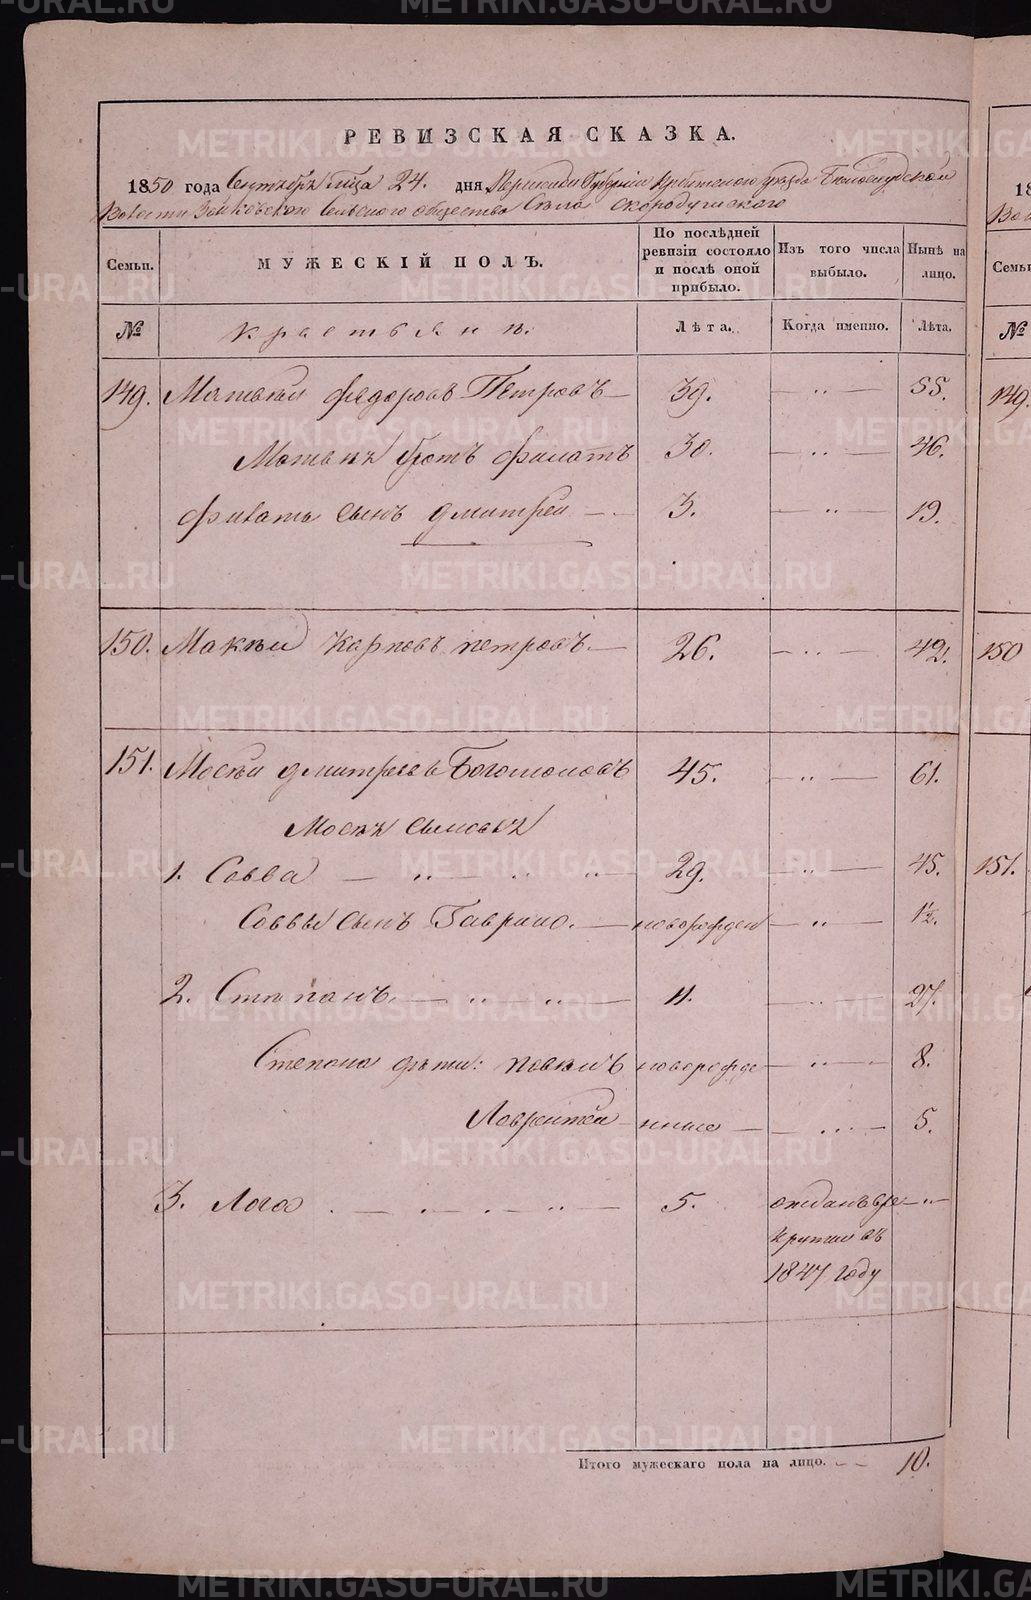 РЕВИЗСКАЯ СКАЗКА.
1850 года Сентября м-ца 24. дня Пермской Губернии Ирбитского уѣзда Белослудской
Волости Зайковского Сельского общества Села Скородумского
Семьи. МУЖЕСКІЙ ПОЛЪ. По послѣдней ревизіи состояло и послѣ оной прибыло. Изъ того числа выбыло. Нынѣ на лицо.
№ крестьянъ. Лѣта. Когда именно. Лѣта.
149. Матвѣй Федоровъ Петровъ 39. — ,, — 55.
Матвѣя братъ Филатъ 30. — ,, — 46.
Филата сынъ Дмитрей 3. — ,, — 19.
150. Макѣй Карповъ Петровъ 26. — ,, — 42.
151. Мосѣй Дмитревъ Богомоловъ 45. — ,, — 61.
Мосѣя сыновья
1. Савва — ,, — ,, — ,, 29. — ,, — 45.
Саввы сынъ Гаврило. новорожден — ,, — 1½.
2. Степанъ. — ,, — ,, — 11. — ,, 27.
Степана дѣти: Павелъ новорожде — ,, — 8.
Лаврентей нные — ,, — 5.
3. Лога 5. отданъ въ ре — ,, —
круты въ
1847 году
Итого мужескаго пола на лицо. — — 10.
18
Вол
Семьи
№
149.
150
151.
METRIKI.GASO-URAL.RU